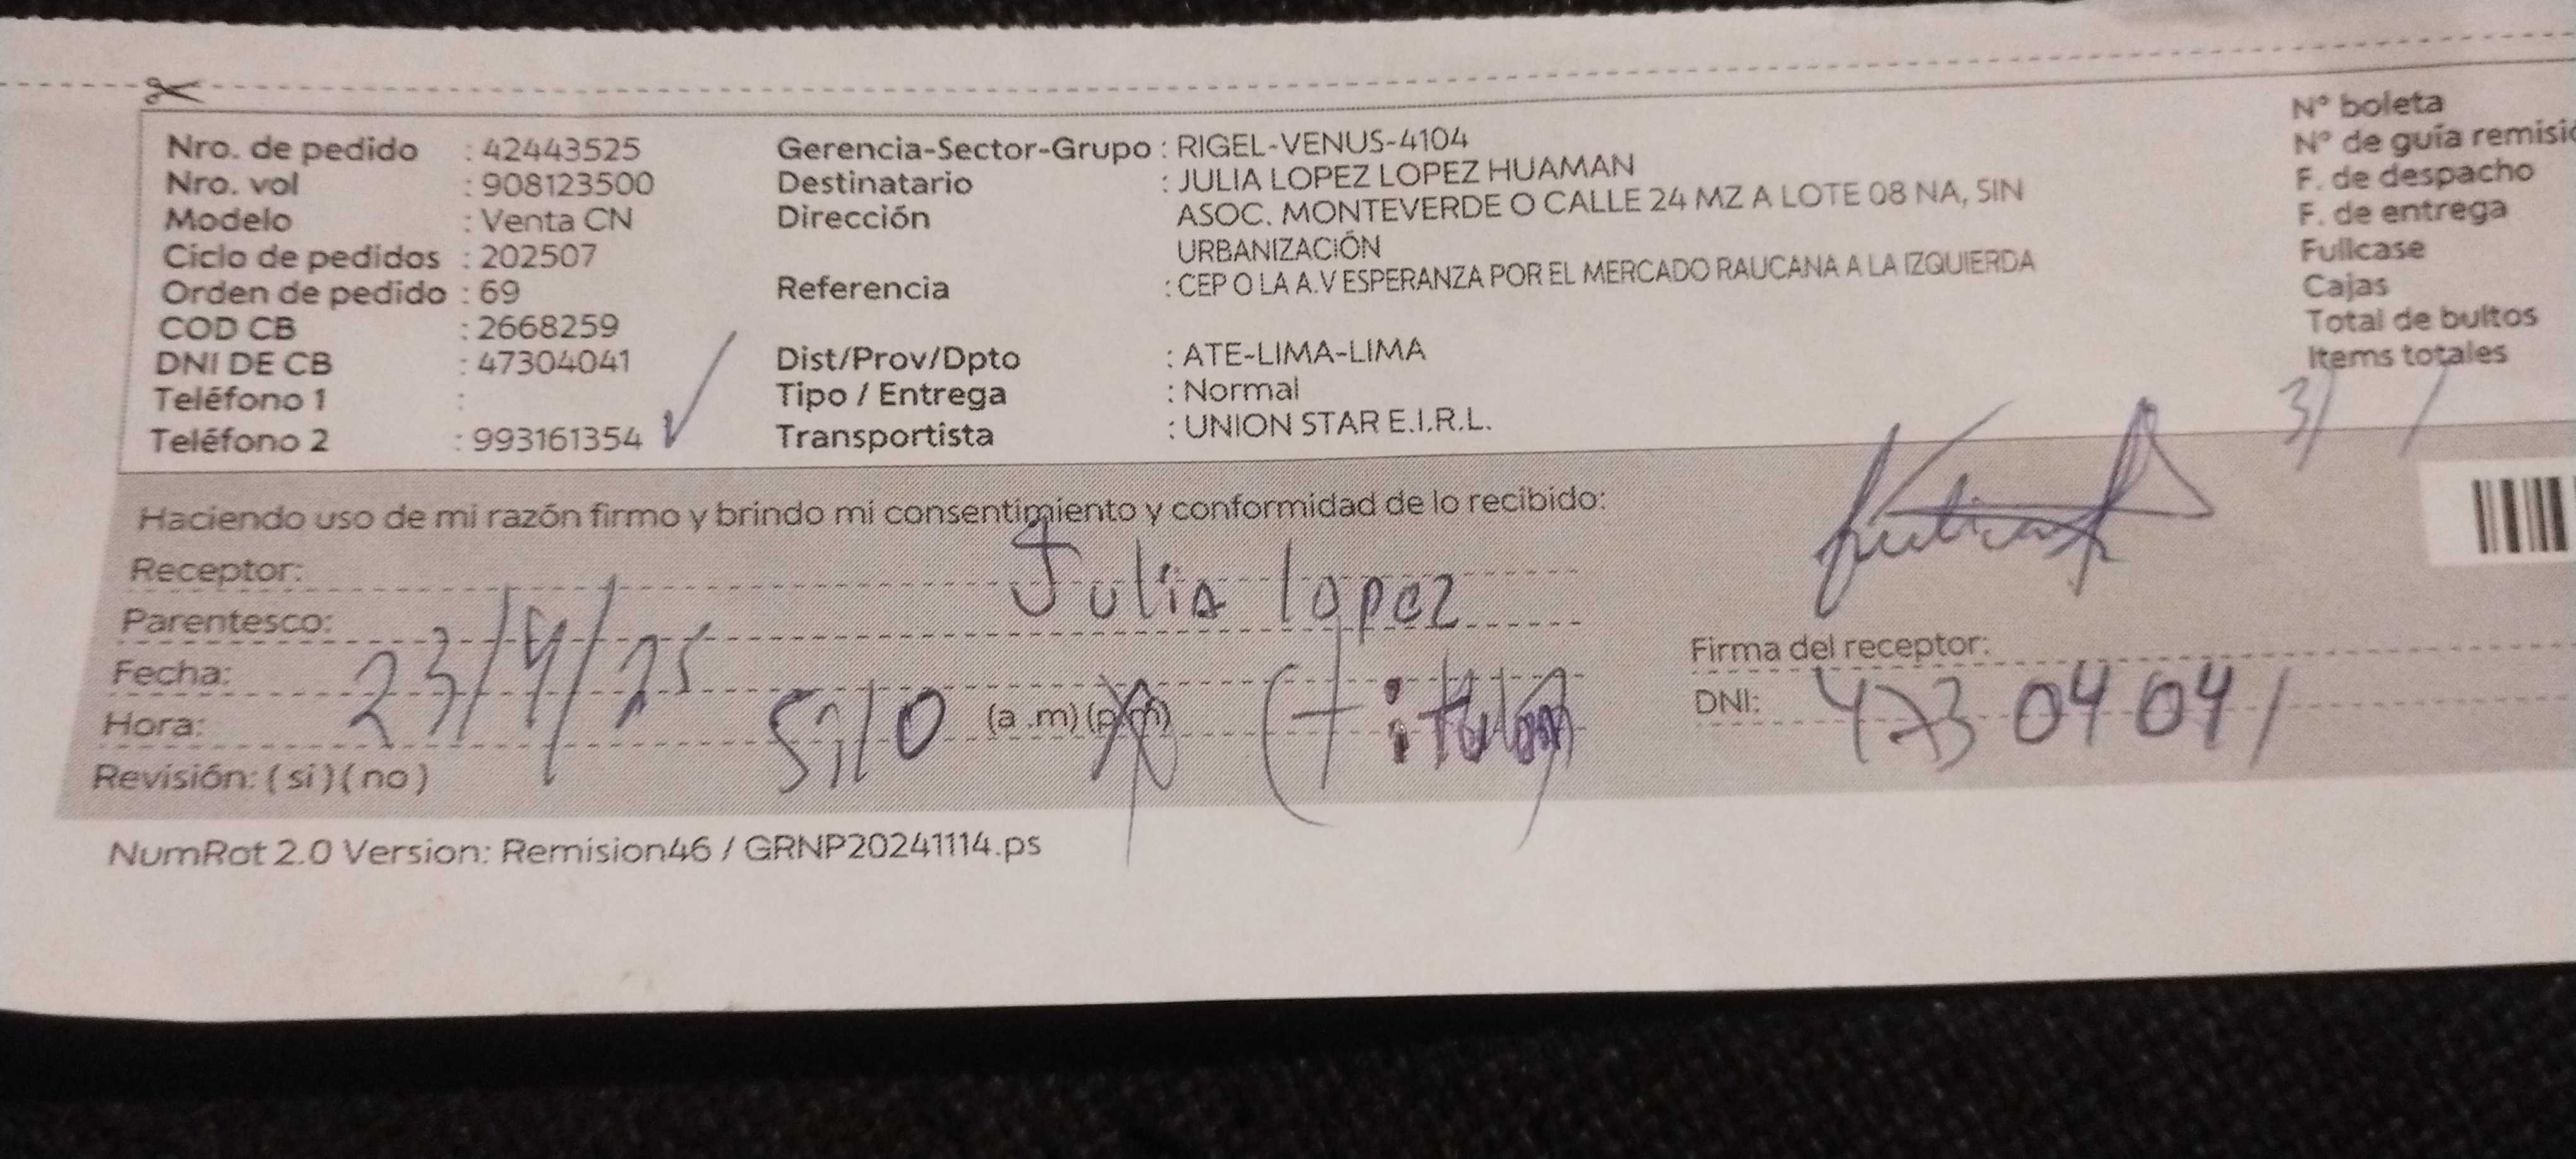 Nro. de pedido : 42443525 Gerencia-Sector-Grupo : RIGEL-VENUS-4104 N° boleta
Nro. vol : 908123500 Destinatario : JULIA LOPEZ LOPEZ HUAMAN N° de guía
Modelo : Venta CN Dirección ASOC. MONTEVERDE O CALLE 24 MZ A LOTE 08 NA, SIN F. de despacho
URBANIZACIÓN F. de entrega
Ciclo de pedidos : 202507 Fullcase
Orden de pedido : 69 Referencia : CEP O LA A.V ESPERANZA POR EL MERCADO RAUCANA A LA IZQUIERDA Cajas
COD CB : 2668259 Total de bultos
DNI DE CB : 47304041 Dist/Prov/Dpto : ATE-LIMA-LIMA Items totales
Teléfono 1 : Tipo / Entrega : Normal
Teléfono 2 : 993161354 Transportista : UNION STAR E.I.R.L.
Haciendo uso de mi razón firmo y brindo mi consentimiento y conformidad de lo recibido:
Receptor: Julia lopez
Parentesco:
Fecha: 23/4/25 Firma del receptor:
Hora: 5:10 (a .m) (p.m) DNI: 47304041
Revisión: ( si ) ( no )
NumRot 2.0 Version: Remision46 / GRNP20241114.ps